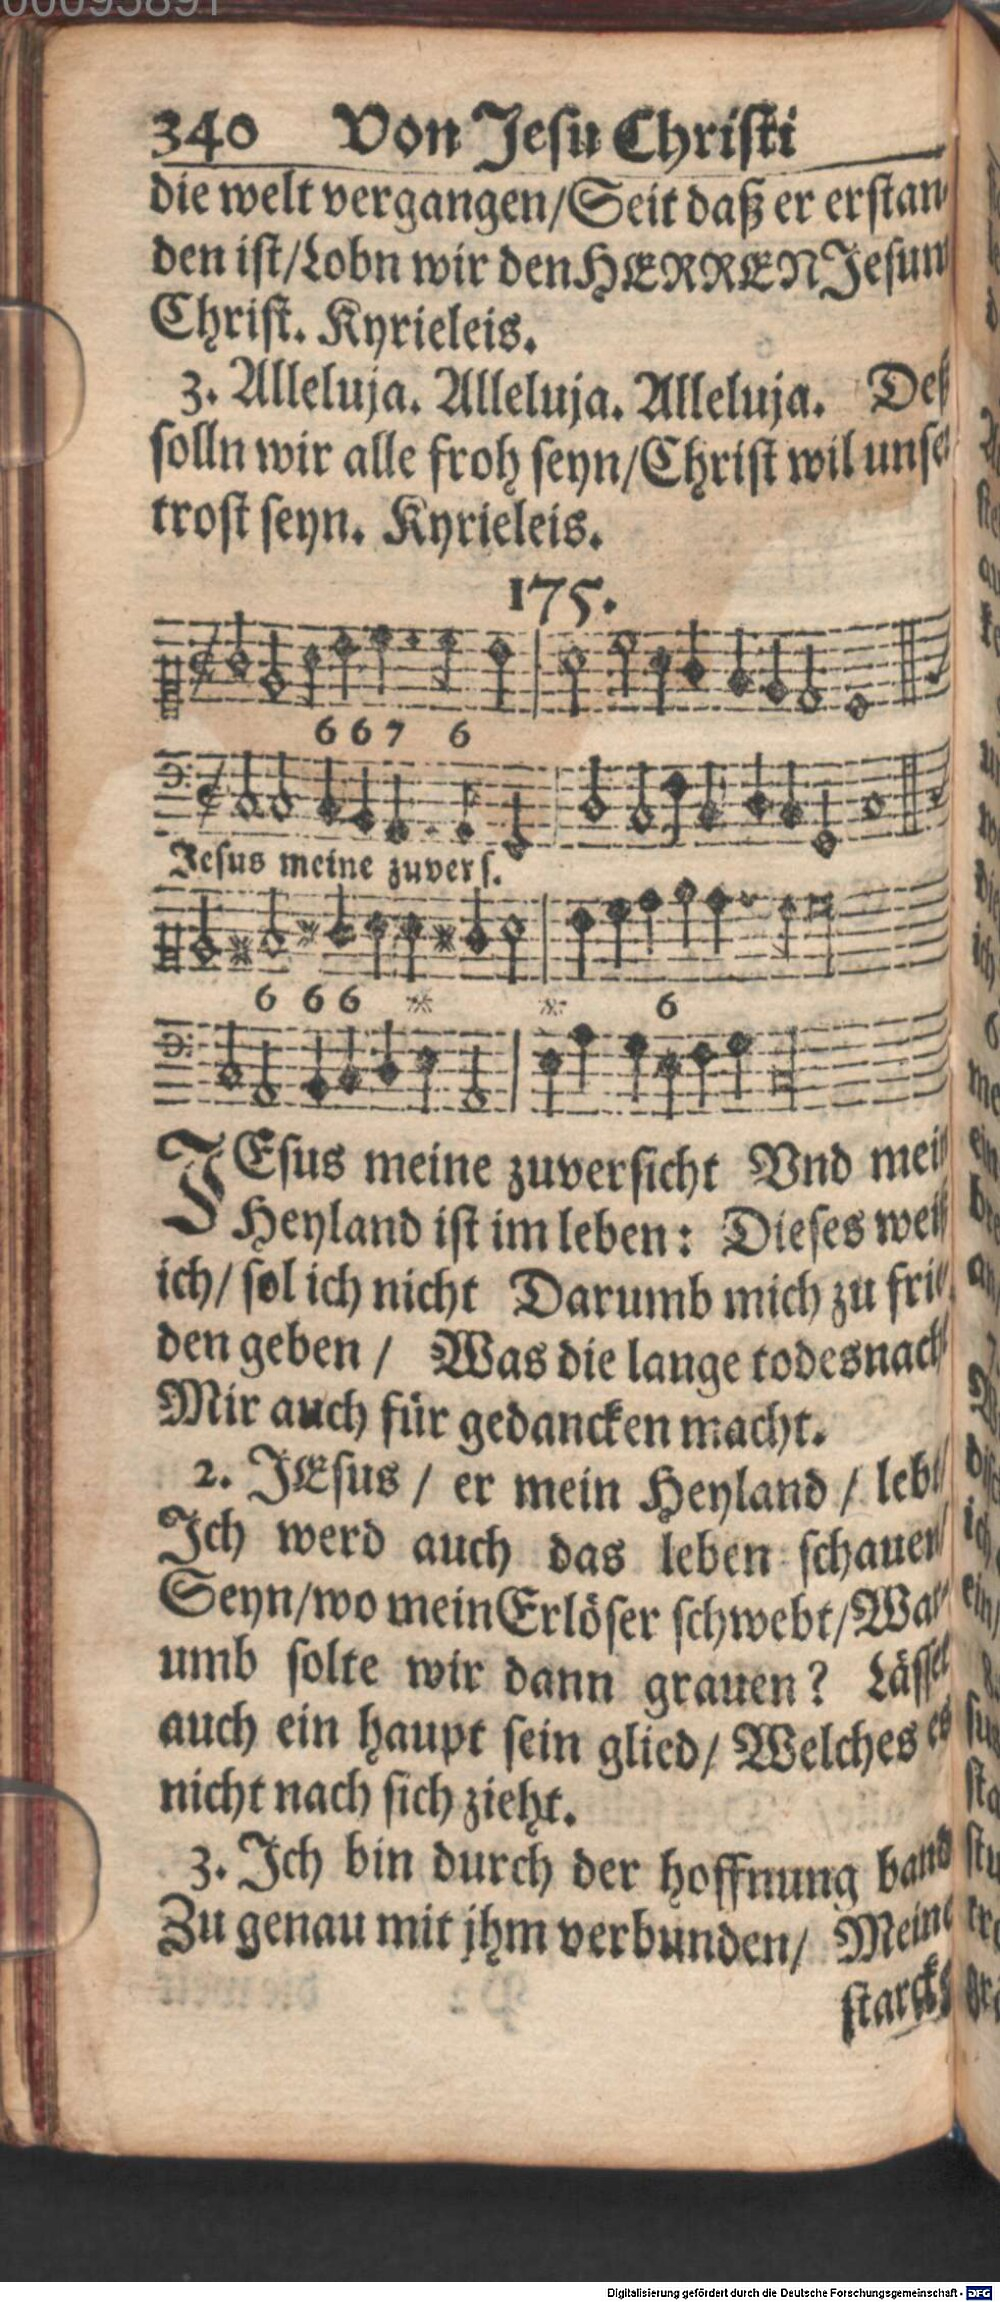 340 Von Jesu Christi
die welt vergangen/Seit daß er erstan-
den ist/Lobn wir den HERREN Jesum
Christ. Kyrieleis.
3. Alleluja. Alleluja. Alleluja. Deß
solln wir alle froh seyn/Christ wil unser
trost seyn. Kyrieleis.
175.
6 6 7 6
Jesus meine zuvers.
6 6 6 6
JEsus meine zuversicht Vnd mein
Heyland ist im leben: Dieses weiß
ich/ sol ich nicht Darumb mich zu frie-
den geben / Was die lange todesnacht
Mir auch für gedancken macht.
2. JEsus / er mein Heyland / lebt/
Ich werd auch das leben schauen/
Seyn/wo mein Erlöser schwebt/War-
umb solte wir dann grauen? Lässet
auch ein haupt sein glied/ Welches es
nicht nach sich zieht.
3. Ich bin durch der hoffnung band
Zu genau mit jhm verbunden/ Meine
starcke
Digitalisierung gefördert durch die Deutsche Forschungsgemeinschaft - DFG